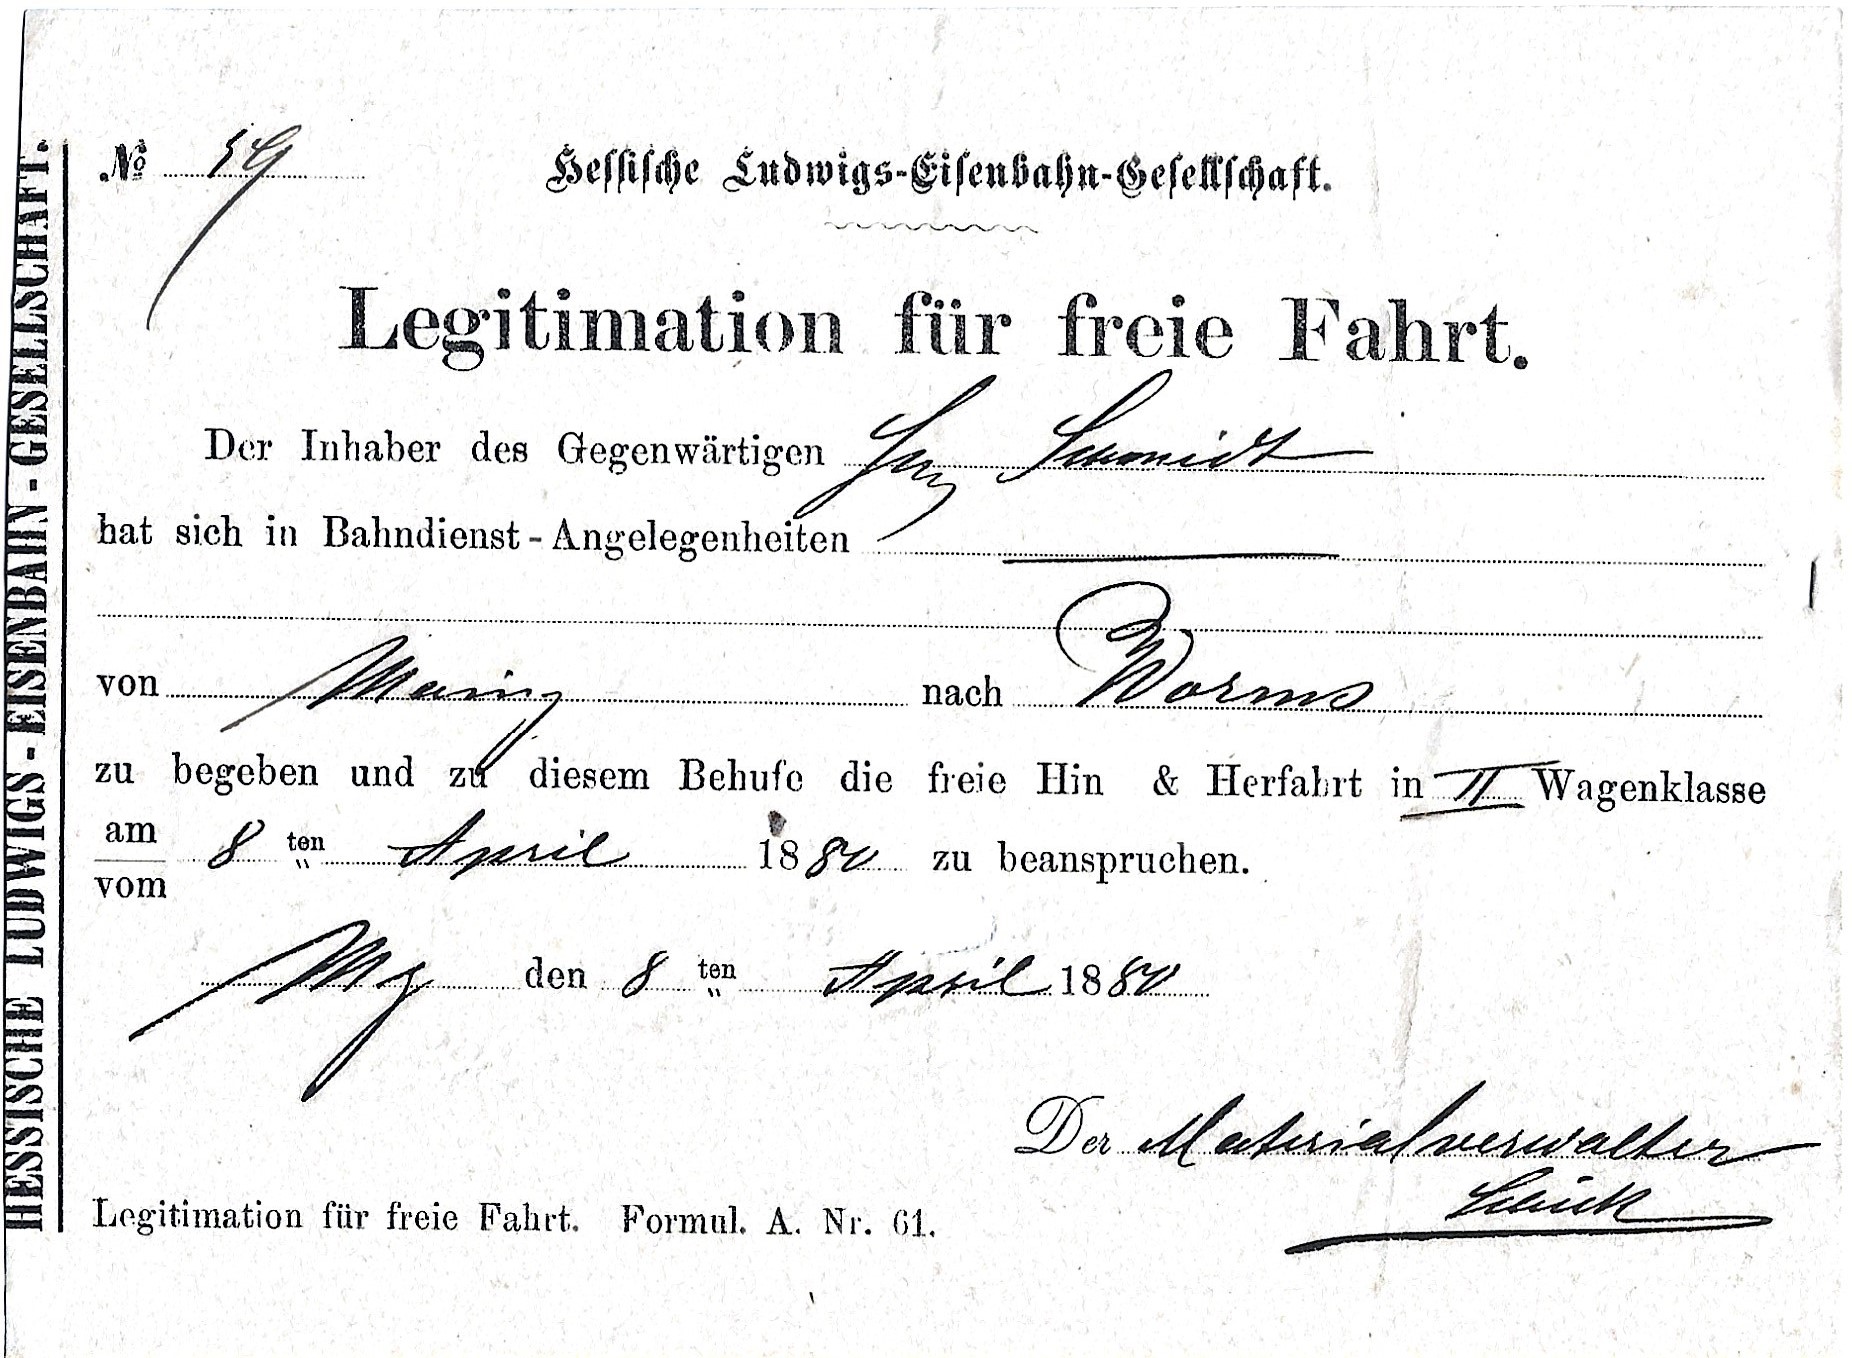 HESSISCHE LUDWIGS-EISENBAHN-GESELLSCHAFT.
No 59
Hessische Ludwigs-Eisenbahn-Gesellschaft.
Legitimation für freie Fahrt.
Der Inhaber des Gegenwärtigen Schmidt
hat sich in Bahndienst-Angelegenheiten
von Mainz nach Worms
zu begeben und zu diesem Behufe die freie Hin & Herfahrt in II Wagenklasse
am
8 ten April 1880 zu beanspruchen.
vom
Mz den 8 ten April 1880
Der Materialverwalter
Legitimation für freie Fahrt. Formul. A. Nr. 61.